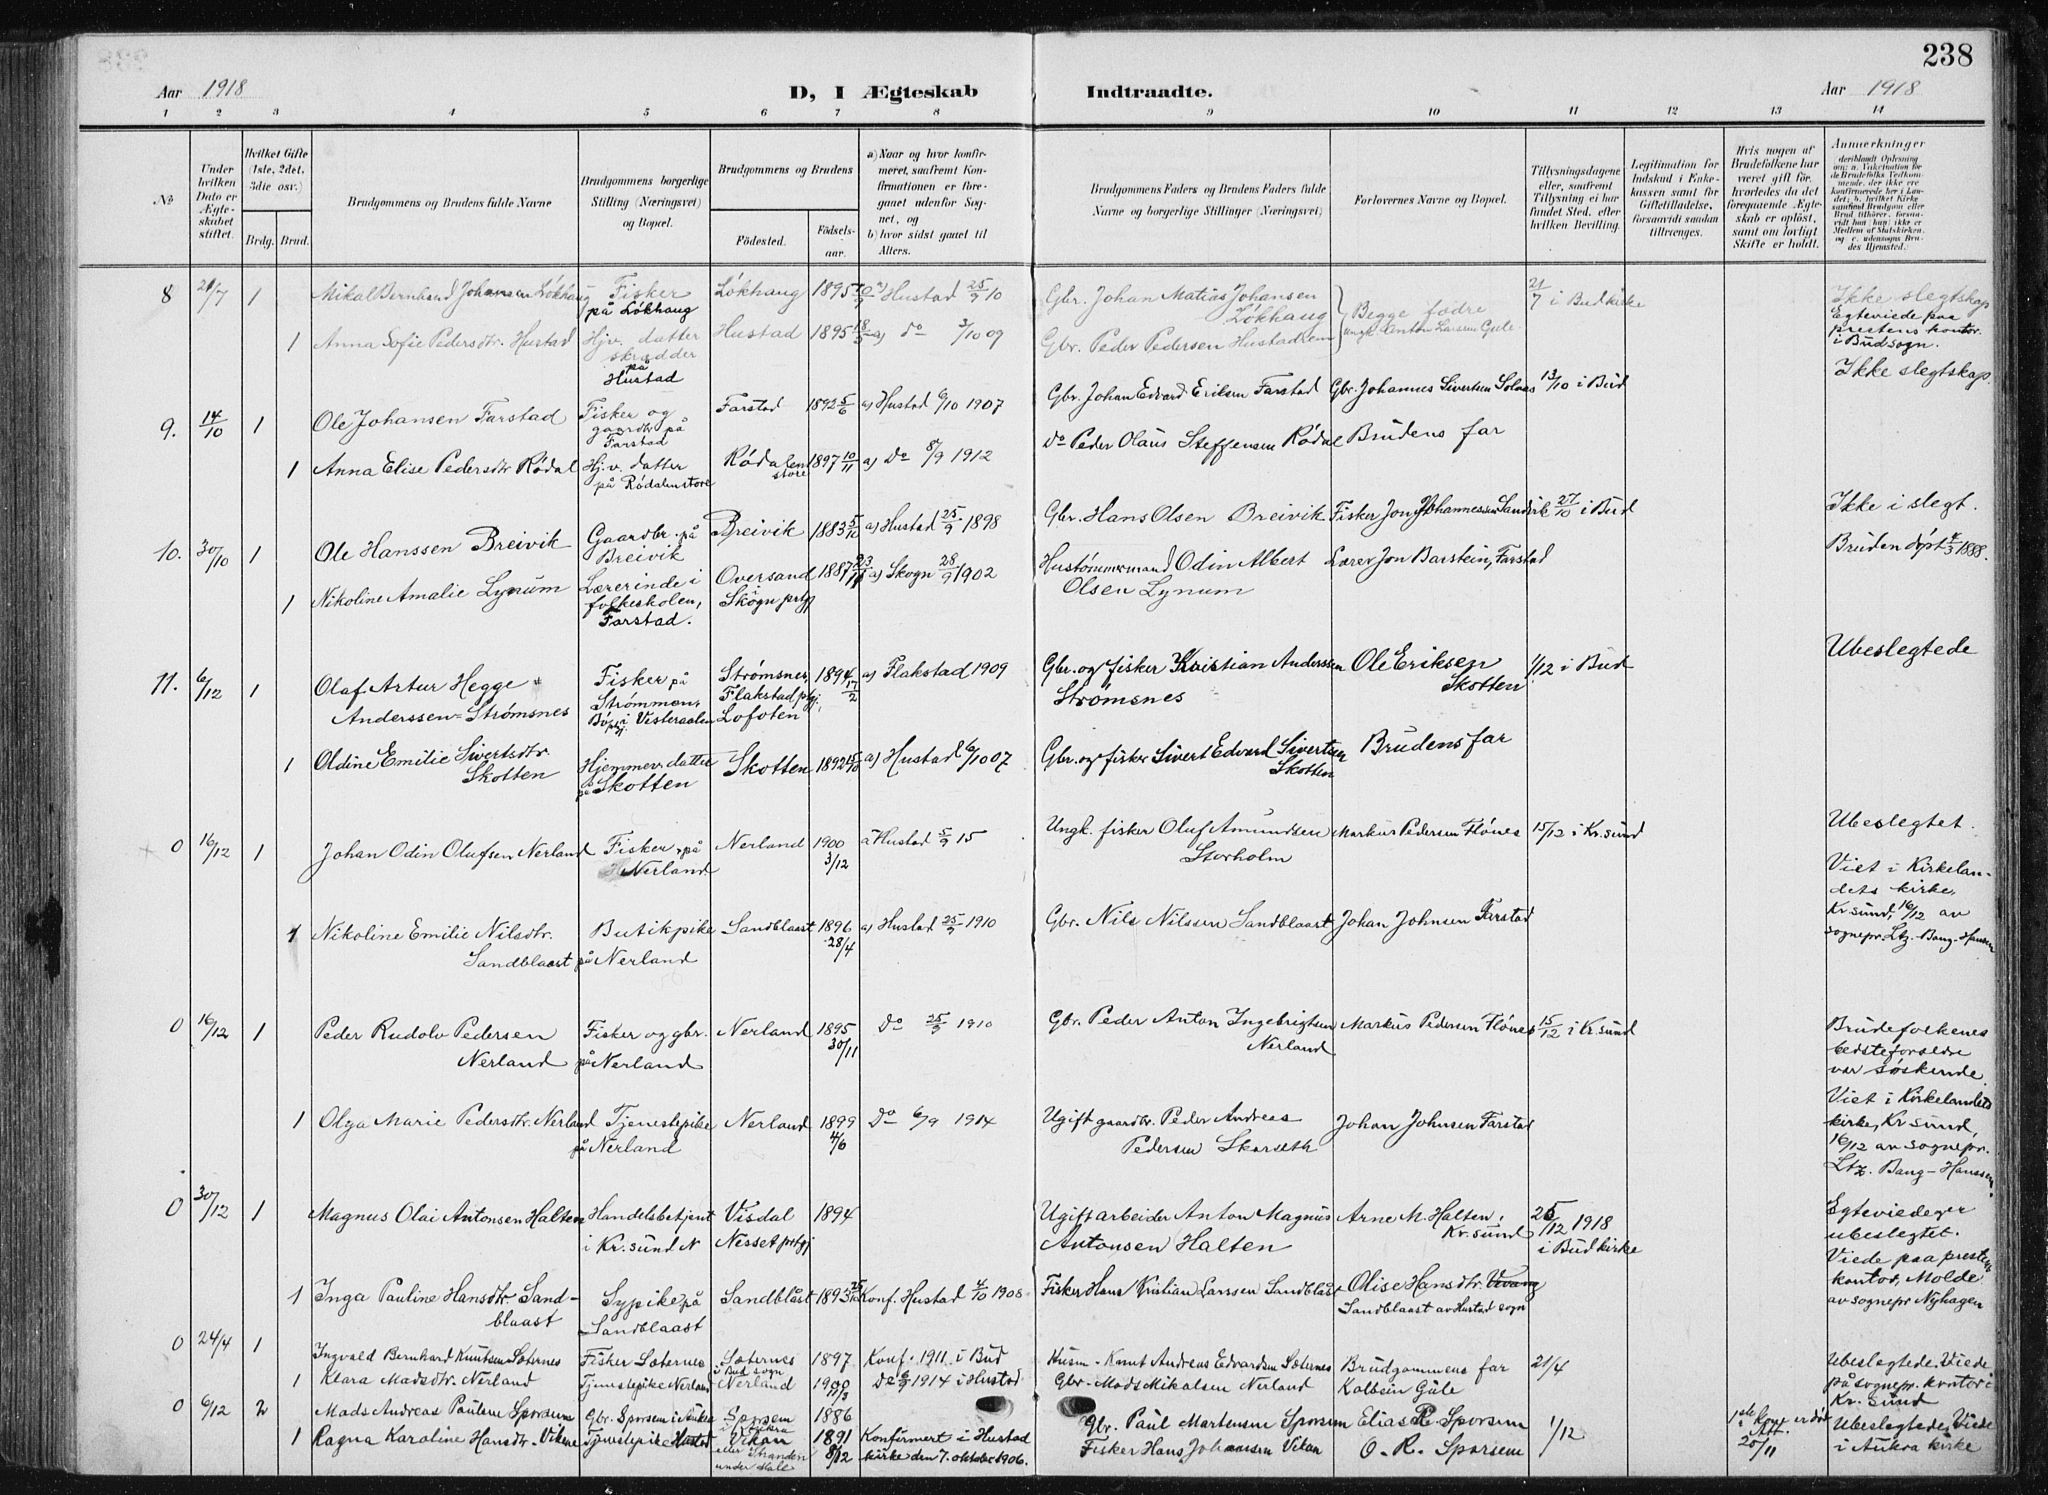 238
Aar 1918
D, I Ægteskab Indtraadte.
Aar 1918
1 2 3 4 5 6 7 8 9 10 11 12 13 14
№
Under hvilken Dato er Ægteskabet stiftet.
Hvilket Gifte (1ste, 2det, 3die osv.)
Brdg. Brud.
Brudgommens og Brudens fulde Navne
Brudgommens borgerlige Stilling (Næringsvei) og Bopæl.
Brudgommens og Brudens
Fødested. Fødselsaar.
a) Naar og hvor konfirmeret, saafremt Konfirmationen er foregaaet udenfor Sognet, og
b) hvor sidst gaaet til Alters.
Brudgommens Faders og Brudens Faders fulde Navne og borgerlige Stillinger (Næringsvei)
Forlovernes Navne og Bopæl.
Tillysningsdagene eller, saafremt Tillysning ei har fundet Sted, efter hvilken Bevilling.
Legitimation for Indskud i Enkekassen samt for Giftetilladelse, forsaavidt saadan tiltrænges.
Hvis nogen af Brudefolkene har været gift før, hvorledes da det foregaaende Ægteskab er opløst, samt om lovligt Skifte er holdt.
Anmerkninger
8 1 Mikal Bernhard Johansen Løkhaug Fisker på Løkhaug Løkhaug 1895 Hustad 25/9 10 Gbr. Johan Matias Johansen Løkhaug Begge fødre 21/7 i Bud kirke Ikke slegtskap Egteviede paa prestens kontor i Bud sogn.
1 Anna Sofie Pedersdtr. Hustad Hjv. datter skrædder på Hustad Hustad 1895 a) do 3/10 09 Gbr. Peder Pedersen
9. 14/10 1 Ole Johansen Farstad Fisker og gaardbr på Farstad Farstad 1892 5/6 a) Hustad 6/10 1907 Gbr. Johan Edvard Eriksen Farstad Gbr. Johannes Sivertsen 13/10 i Bud Ikke slegtskap.
1 Anna Elise Pedersdtr Rødal Hj.v. datter på Rødalenstore Rødalen store 1897 10/11 a) Do 8/9 1912 do Peder Olaus Steffensen Rødal Brudens far
10. 30/10 1 Ole Hanssen Breivik Gaardbr. på Breivik Breivik 1883 a) Hustad 25/9 1898 Gbr. Hans Olsen Breivik Fisker Jon Johannessen 27/10 i Bud Ikke i slegt.
1 Nikoline Amalie Lynum Lærerinde i folkeskolen, Farstad. Oversand Skogn prtgj 1887 a) Skogn 28/9 1902 Hustømmermand Odin Albert Olsen Lynum Lærer Jon Barstein, Farstad Bruden døpt 4/3 1888.
11. 6/12 1 Olaf Artur Hegge Anderssen-Strømsnes Fisker på Strømmen, Bø i Vesteraalen Strømsnes, Flakstad pgj. Lofoten 1894 17/2 a) Flakstad 1909 Gbr. og fisker Kristian Anderssen Strømsnes Ole Eriksen Skotten 1/12 i Bud Ubeslegtede
1 Oldine Emilie Sivertsdtr. Skotten Hjemmev. datter på Skotten Skotten 1892 a) Hustad 6/10 07 Gbr. og fisker Sivert Edvard Sivertsen Skotten Brudens far
0 16/12 1 Johan Odin Olufsen Nerland Fisker på Nerland Nerland 1900 3/12 a Hustad 5/9 15 Ungk. fisker Oluf Amundsen Storholm Markus Pedersen Flønes 15/12 i Kr.sund Ubeslegtet.
1 Nikoline Emilie Nilsdtr. Sandblaast Butikpike på Nerland Sandblaast 1896 28/4 a) Hustad 25/9 1910 Gbr. Nils Nilssen Sandblaast Johan Johnsen Farstad Viet i Kirkelandets kirke, Kr.sund, 16/12 av sognepr. Ltz. Bang-Hansen
0 16/12 1 Peder Rudolv Pedersen Nerland Fisker og gbr. på Nerland Nerland 1895 30/11 Do 25/9 1910 Gbr. Peder Anton Ingebrigtsen Nerland Markus Pedersen Flønes 15/12 i Kr.sund Brudefolkenes bedsteforældre var søskende.
1 Olga Marie Pedersdtr. Nerland Tjenestepike på Nerland Nerland 1899 4/6 Do 6/9 1914 Ugift gaardbr. Peder Andreas Pedersen Skarseth Johan Johnsen Farstad Viet i Kirkelandets kirke, Kr sund, 16/12 av sognepr. Ltz. Bang-Hanssen.
0 30/12 1 Magnus Olai Antonsen Halten Handelsbetjent i Kr.sund N Visdal Nesset prtgj 1894 Ugift arbeider Anton Magnus Antonsen Halten Arne M. Halten, Kr.sund 26/12 1918 i Bud kirke Egteviede er ubeslegtet.
1 Inga Pauline Hansdtr. Sandblaast Sypike på Sandblaast Sandblåst 1893 Konf. Hustad 4/10 1908 Fisker Hans Kristian Larssen Sandblåst Olise Hansdtr. Sandblaast av Hustad sogn Viede paa prestens kontor, Molde av sognepr Nyhagen
0 24/4 1 Ingvald Bernhard Knutsen Sæternes Fisker Sæternes Sæternes i Bud sogn 1897 Konf. 1911 i Bud Husm. Knut Andreas Edvardsen Sæternes Brudgommens far 21/4 Ubeslegtede. Viede på sognepr. kontor i Kr. sund
1 Klara Madsdtr. Nerland Tjenestepike Nerland Nerland 1900 Do 1914 i Hustad Gbr. Mads Mikalsen Nerland Kolbein Gule
0 6/12 2 Mads Andreas Paulsen Sporsem Gbr. Sporsem i Aukra Sporsem i Aukra 1886 Gbr. Paul Martensen Sporsem Elias R. Sporsem 1/12 Ubeslegtede. Viede i Aukra kirke
1 Ragna Karoline Hansdtr. Vikan Tjenestepike Hustad Vikan 1891 8/12 Konfirmert i Hustad kirke den 7. oktober 1906. Fisker Hans Johansen Vikan O. R. Sporsem